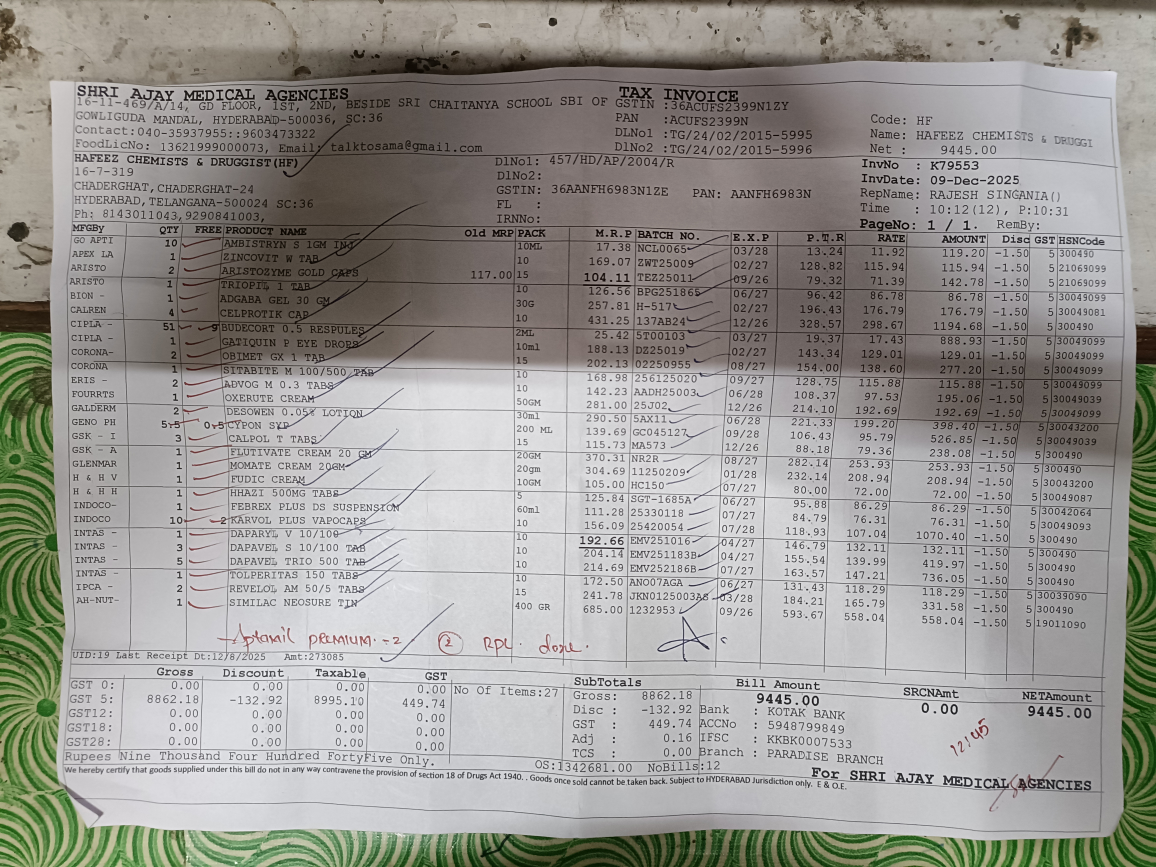 SHRI AJAY MEDICAL AGENCIES TAX INVOICE
16-11-469/A/14, GD FLOOR, 1ST, 2ND, BESIDE SRI CHAITANYA SCHOOL SBI OF GSTIN :36ACUFS2399N1ZY
GOWLIGUDA MANDAL, HYDERABAD-500036, SC:36 PAN :ACUFS2399N Code: HF
Contact:040-35937955::9603473322 DLNo1 :TG/24/02/2015-5995 Name: HAFEEZ CHEMISTS & DRUGGI
FoodLicNo: 13621999000073, Email: talktosama@gmail.com DLNo2 :TG/24/02/2015-5996 Net : 9445.00
HAFEEZ CHEMISTS & DRUGGIST(HF) DlNo1: 457/HD/AP/2004/R InvNo : K79553
16-7-319 DlNo2: InvDate: 09-Dec-2025
CHADERGHAT, CHADERGHAT-24 GSTIN: 36AANFH6983N1ZE PAN: AANFH6983N RepName: RAJESH SINGANIA()
HYDERABAD, TELANGANA-500024 SC:36 FL : Time : 10:12(12), P:10:31
Ph: 8143011043,9290841003, IRNNo: PageNo: 1 / 1. RemBy:
MFGBy QTY FREE PRODUCT NAME Old MRP PACK M.R.P BATCH NO. E.X.P P.T.R RATE AMOUNT Disc GST HSNCode
GO APTI 10 AMBISTRYN S 1GM INJ 10ML 17.38 NCL0065 03/28 13.24 11.92 119.20 -1.50 5 300490
APEX LA 1 ZINCOVIT W TAB 15 169.07 ZWT25009 02/27 128.82 115.94 115.94 -1.50 5 21069099
ARISTO 2 ARISTOZYME GOLD CAPS 117.00 15 104.11 TEZ25011 09/26 79.32 71.39 142.78 -1.50 5 21069099
ARISTO 1 TRIOPIL 1 TAB 10 126.56 BPG251865 06/27 96.42 86.78 86.78 -1.50 5 30049099
BION - 1 ADGABA GEL 30 GM 30G 257.81 H-517 02/27 196.43 176.79 176.79 -1.50 5 30049081
CALREN 4 CELPROTIK CAP 10 431.25 137AB24 12/26 328.57 298.67 1194.68 -1.50 5 300490
CIPLA - 51 9 BUDECORT 0.5 RESPULES 2ML 25.42 5T00103 03/27 19.37 17.43 888.93 -1.50 5 30049099
CIPLA - 1 GATIQUIN P EYE DROPS 10ml 188.13 DZ25019 02/27 143.34 129.01 129.01 -1.50 5 30049099
CORONA- 2 OBIMET GX 1 TAB 15 202.13 02250955 08/27 154.00 138.60 277.20 -1.50 5 30049099
CORONA 1 SITABITE M 100/500 TAB 10 168.98 256125020 09/27 128.75 115.88 115.88 -1.50 5 30049099
ERIS - 2 ADVOG M 0.3 TABS 10 142.23 AADH25003 06/28 108.37 97.53 195.06 -1.50 5 30049099
FOURRTS 1 OXERUTE CREAM 50GM 281.00 25J02 12/26 214.10 192.69 192.69 -1.50 5 30049099
GALDERM 2 DESOWEN 0.05% LOTION 30ml 290.50 5AX11 06/28 221.33 199.20 398.40 -1.50 5 30043200
GENO PH 5.5 0.5 CYPON SYP 200 ML 139.69 GC045127 09/28 106.43 95.79 526.85 -1.50 5 30049039
GSK - I 3 CALPOL T TABS 15 115.73 MA573 12/26 88.18 79.36 238.08 -1.50 5 300490
GSK - A 1 FLUTIVATE CREAM 20 GM 20GM 370.31 NR2R 08/27 282.14 253.93 253.93 -1.50 5 300490
GLENMAR 1 MOMATE CREAM 20GM 20gm 304.69 11250209 01/28 232.14 208.94 208.94 -1.50 5 30043200
H & H V 1 FUDIC CREAM 10GM 105.00 HC150 07/27 80.00 72.00 72.00 -1.50 5 30049087
H & H H 1 HHAZI 500MG TABS 5 125.84 SGT-1685A 06/27 95.88 86.29 86.29 -1.50 5 30042064
INDOCO- 1 FEBREX PLUS DS SUSPENSION 60ml 111.28 25330118 07/27 84.79 76.31 76.31 -1.50 5 30049093
INDOCO 10 2 KARVOL PLUS VAPOCAPS 10 156.09 25420054 07/28 118.93 107.04 1070.40 -1.50 5 300490
INTAS - 1 DAPARYL V 10/100 10 192.66 EMV251016 04/27 146.79 132.11 132.11 -1.50 5 300490
INTAS - 3 DAPAVEL S 10/100 TAB 10 204.14 EMV251183B 04/27 155.54 139.99 419.97 -1.50 5 300490
INTAS - 5 DAPAVEL TRIO 500 TAB 10 214.69 EMV252186B 07/27 163.57 147.21 736.05 -1.50 5 300490
INTAS - 1 TOLPERITAS 150 TABS 10 172.50 ANO07AGA 06/27 131.43 118.29 118.29 -1.50 5 30039090
IPCA - 2 REVELOL AM 50/5 TABS 15 241.78 JKN0125003AS 03/28 184.21 165.79 331.58 -1.50 5 300490
AH-NUT- 1 SIMILAC NEOSURE TIN 400 GR 685.00 1232953 09/26 593.67 558.04 558.04 -1.50 5 19011090
Aptamil PREMIUM - 2 ② RPL. done.
UID:19 Last Receipt Dt:12/8/2025 Amt:273085
Gross Discount Taxable GST
GST 0: 0.00 0.00 0.00 0.00
GST 5: 8862.18 -132.92 8995.10 449.74
GST12: 0.00 0.00 0.00 0.00
GST18: 0.00 0.00 0.00 0.00
GST28: 0.00 0.00 0.00 0.00
No Of Items:27
SubTotals
Gross: 8862.18
Disc : -132.92
GST : 449.74
Adj : 0.16
TCS : 0.00
Bill Amount SRCNAmt NETAmount
9445.00 0.00 9445.00
Bank : KOTAK BANK
ACCNo : 5948799849
IFSC : KKBK0007533
Branch : PARADISE BRANCH
12:45
Rupees Nine Thousand Four Hundred FortyFive Only. OS:1342681.00 NoBills:12
We hereby certify that goods supplied under this bill do not in any way contravene the provision of section 18 of Drugs Act 1940. . Goods once sold cannot be taken back. Subject to HYDERABAD Jurisdiction only. E & O.E.
For SHRI AJAY MEDICAL AGENCIES